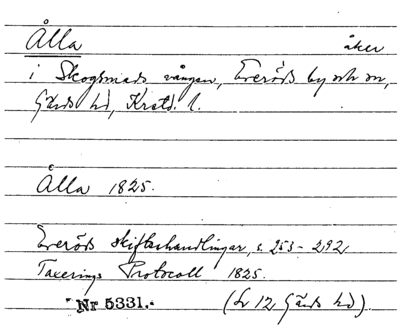 Ålla åker
i Skogsmads vången, Everöds by och sn,
Gärds hd, Krstd. l.
Ålla 1825.
Everöds skifteshandlingar, s. 253-292,
Taxerings Protocoll 1825.
Nr 5331. (Lr 12, Gärds hd).